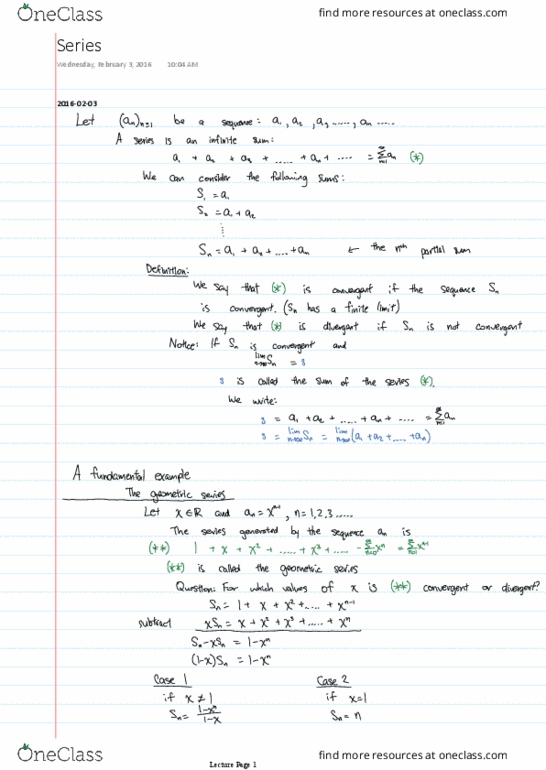 OneClass find more resources at oneclass.com
Series
Wednesday, February 3, 2016 10:04 AM
2016-02-03
Let (aₙ)ₙ₌₁ be a sequence: a₁, a₂, a₃ ....., aₙ .....
A series is an infinite sum:
a₁ + a₂ + a₃ + ..... + aₙ + .... = ∑ₙ₌₁^∞ aₙ (*)
We can consider the following sums:
S₁ = a₁
S₂ = a₁ + a₂
⋮
Sₙ = a₁ + a₂ + .... + aₙ ← the nᵗʰ partial sum
Definition:
We say that (*) is convergent if the sequence Sₙ
is convergent. (Sₙ has a finite limit)
We say that (*) is divergent if Sₙ is not convergent
Notice: If Sₙ is convergent and
lim n→∞ Sₙ = s
s is called the sum of the series (*).
We write:
s = a₁ + a₂ + ..... + aₙ + .... = ∑ₙ₌₁^∞ aₙ
s = lim n→∞ Sₙ = lim n→∞ (a₁ + a₂ + .... + aₙ)
A fundamental example
The geometric series
Let x ∈ ℝ and aₙ = xⁿ⁻¹, n = 1, 2, 3 .....
The series generated by the sequence aₙ is
(**) 1 + x + x² + ..... + xⁿ + .... = ∑ₙ₌₀^∞ xⁿ = ∑ₙ₌₁^∞ xⁿ⁻¹
(**) is called the geometric series
Question: For which values of x is (**) convergent or divergent?
Sₙ = 1 + x + x² + .... + xⁿ⁻¹
subtract xSₙ = x + x² + x³ + ..... + xⁿ
Sₙ - xSₙ = 1 - xⁿ
(1-x)Sₙ = 1 - xⁿ
Case 1 Case 2
if x ≠ 1 if x = 1
Sₙ = (1-xⁿ)/(1-x) Sₙ = n
OneClass find more resources at oneclass.com
Lecture Page 1